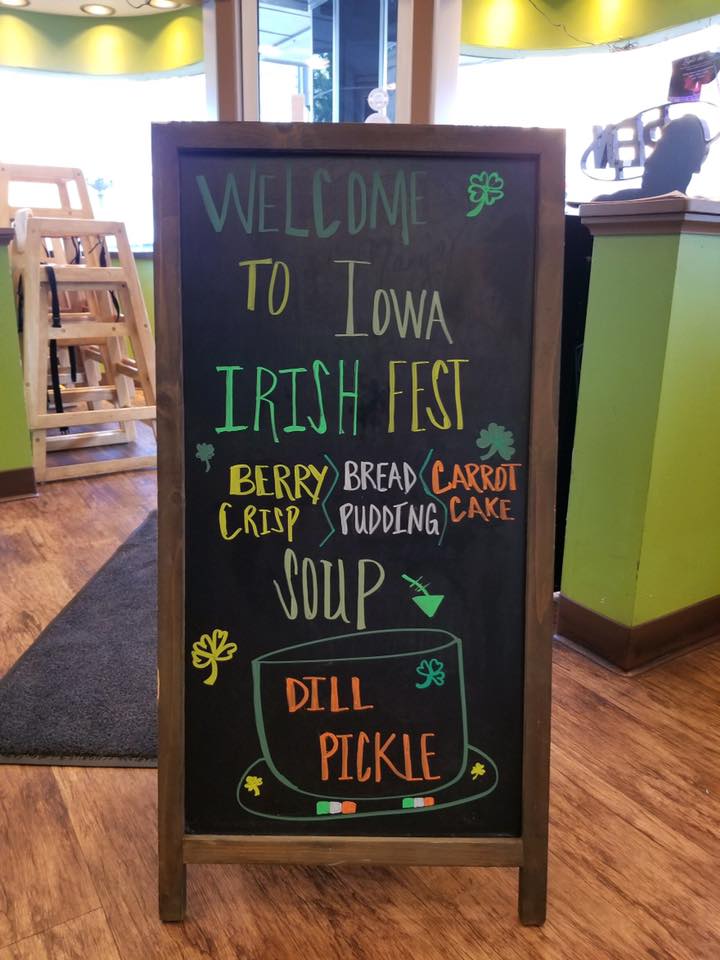 WELCOME
TO IOWA
IRISH FEST
BERRY CRISP
BREAD PUDDING
CARROT CAKE
SOUP
DILL
PICKLE